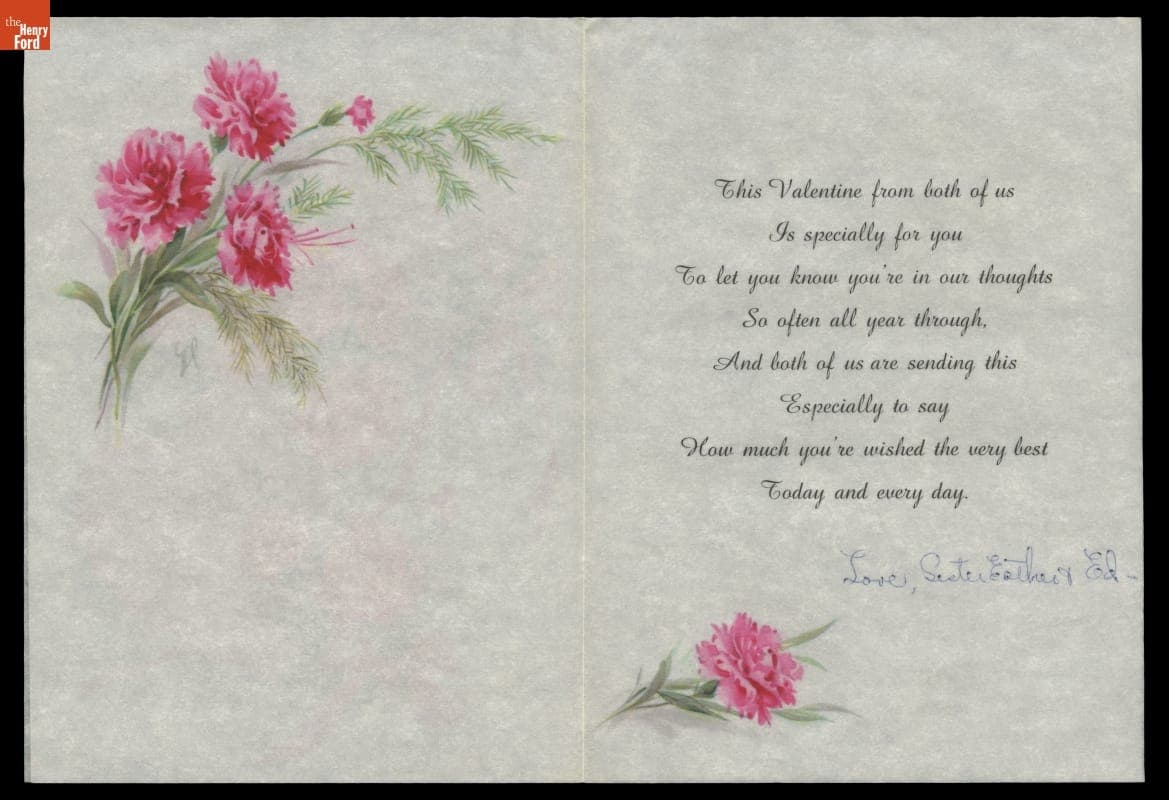 the
Henry
Ford
This Valentine from both of us
Is specially for you
To let you know you're in our thoughts
So often all year through,
And both of us are sending this
Especially to say
How much you're wished the very best
Today and every day.
Love, Sister Esther & Ed -